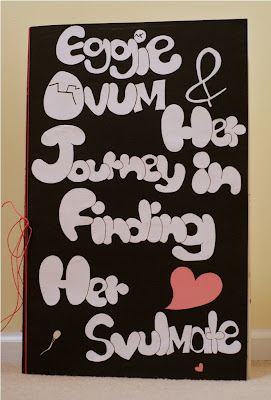 Eggie
OVUM &
Her
Journey in
Finding
Her
Svulmate